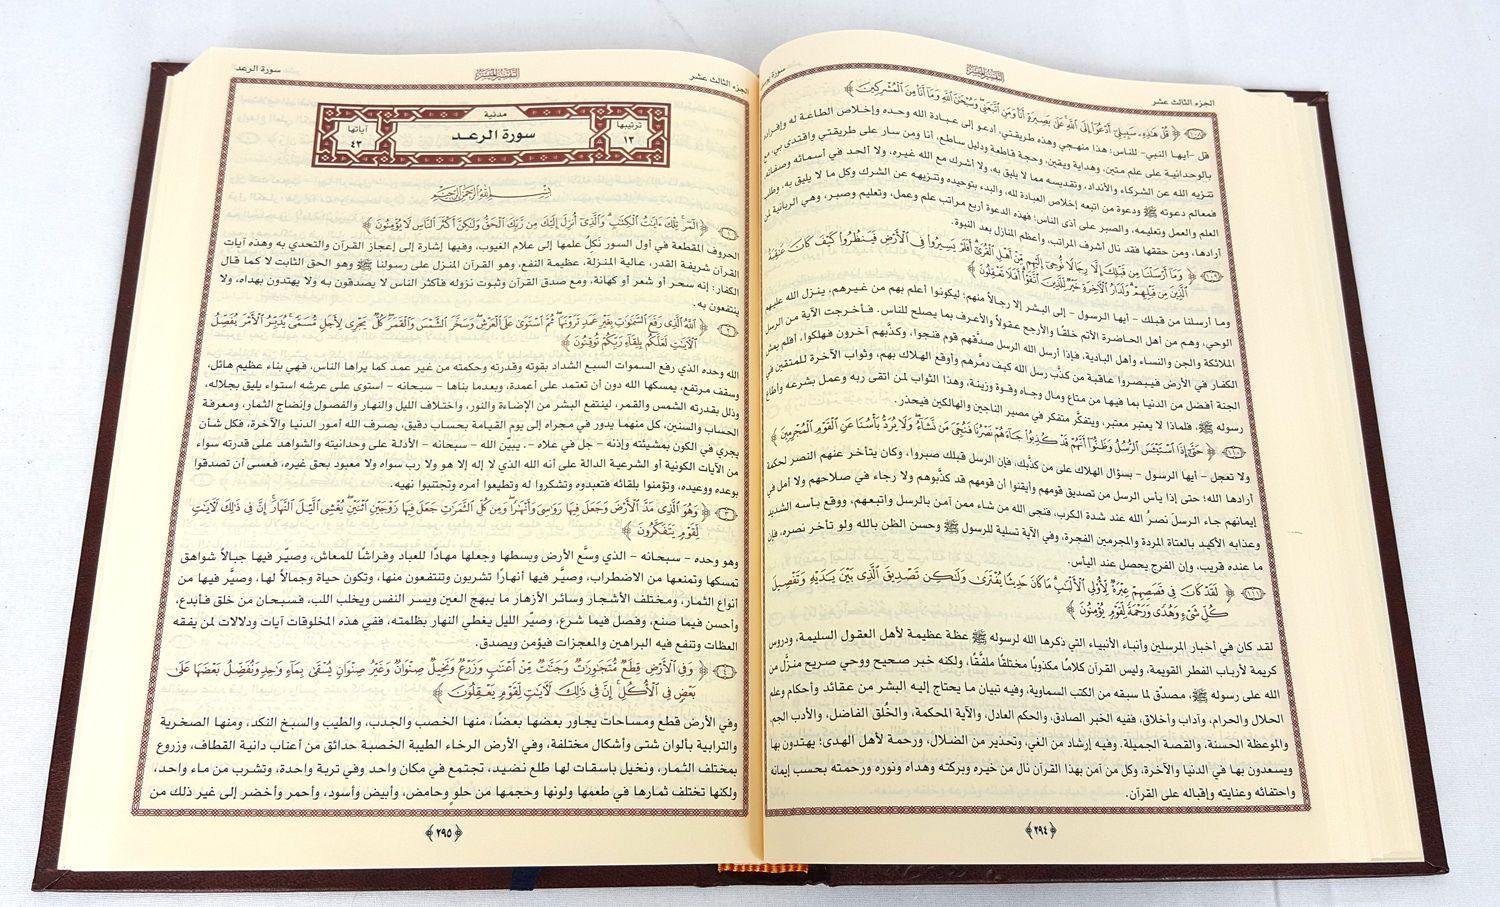 الجزء الثالث عشر
التفسير الميسر
﴿ قُلْ هَٰذِهِۦ سَبِيلِىٓ أَدْعُوٓا۟ إِلَى ٱللَّهِ عَلَىٰ بَصِيرَةٍ أَنَا۠ وَمَنِ ٱتَّبَعَنِى وَسُبْحَٰنَ ٱللَّهِ وَمَآ أَنَا۠ مِنَ ٱلْمُشْرِكِينَ ﴾
قل -أيها النبي- للناس: هذا منهجي وهذه طريقتي، أدعو إلى عبادة الله وحده وإخلاص الطاعة له وإفراده
بالوحدانية على علم متين، وهداية ويقين، وحجة قاطعة ودليل ساطع، أنا ومن سار على طريقتي واقتدى بي، مع
تنزيه الله عن الشركاء والأنداد، وتقديسه مما لا يليق به، ولا أشرك مع الله غيره، ولا ألحد في أسمائه وصفاته
فمعالم دعوته ﷺ ودعوة من اتبعه إخلاص العبادة لله، والبدء بتوحيده وتنزيهه عن الشرك وكل ما لا يليق به، وطلب
العلم والعمل وتعليمه، والصبر على أذى الناس؛ فهذه الدعوة أربع مراتب علم وعمل، وتعليم وصبر، وهي الربانية لمن
أرادها، ومن حققها فقد نال أشرف المراتب، وأعظم المنازل بعد النبوة.
﴿ وَمَآ أَرْسَلْنَا مِن قَبْلِكَ إِلَّا رِجَالًا نُّوحِىٓ إِلَيْهِم مِّنْ أَهْلِ ٱلْقُرَىٰٓ أَفَلَمْ يَسِيرُوا۟ فِى ٱلْأَرْضِ فَيَنظُرُوا۟ كَيْفَ كَانَ عَٰقِبَةُ
ٱلَّذِينَ مِن قَبْلِهِمْ وَلَدَارُ ٱلْءَاخِرَةِ خَيْرٌ لِّلَّذِينَ ٱتَّقَوْا۟ أَفَلَا تَعْقِلُونَ ﴾
وما أرسلنا من قبلك - أيها الرسول - إلى البشر إلا رجالاً منهم؛ ليكونوا أعلم بهم من غيرهم، ينزل الله عليهم
الوحي، وهم من أهل الحاضرة الأتم خلقًا والأرجح عقولاً والأعرف بما يصلح للناس. فأخرجت الآية من الرسل
الملائكة والجن والنساء وأهل البادية، فإذا أرسل الله الرسل صدقهم قوم فنجوا، وكذبهم آخرون فهلكوا، أفلم يمش
الكفار في الأرض فيبصروا عاقبة من كذب رسل الله كيف دمرهم وأوقع الهلاك بهم، وثواب الآخرة للمتقين في
الجنة أفضل من الدنيا بما فيها من متاع ومال وجاه وقوة وزينة، وهذا الثواب لمن اتقى ربه وعمل بشرعه وأطاع
رسوله ﷺ، فلماذا لا يعتبر معتبر، ويتفكر متفكر في مصير الناجين والهالكين فيحذر.
﴿ حَتَّىٰٓ إِذَا ٱسْتَيْـَٔسَ ٱلرُّسُلُ وَظَنُّوٓا۟ أَنَّهُمْ قَدْ كُذِبُوا۟ جَآءَهُمْ نَصْرُنَا فَنُجِّىَ مَن نَّشَآءُ وَلَا يُرَدُّ بَأْسُنَا عَنِ ٱلْقَوْمِ ٱلْمُجْرِمِينَ ﴾
ولا تعجل - أيها الرسول - بسؤال الهلاك على من كذبك، فإن الرسل قبلك صبروا، وكان يتأخر عنهم النصر لحكمة
أرادها الله؛ حتى إذا يأس الرسل من تصديق قومهم وأيقنوا أن قومهم قد كذبوهم ولا رجاء في صلاحهم ولا أمل في
إيمانهم جاء الرسل نصر الله عند شدة الكرب، فنجى الله من شاء ممن آمن بالرسل واتبعهم، ووقع بأسه الشديد
وعذابه الأكيد بالعتاة المردة والمجرمين الفجرة، وفي الآية تسلية للرسول ﷺ وحسن الظن بالله ولو تأخر نصره، فإن
ما عنده قريب، وإن الفرج يحصل عند اليأس.
﴿ لَقَدْ كَانَ فِى قَصَصِهِمْ عِبْرَةٌ لِّأُو۟لِى ٱلْأَلْبَٰبِ مَا كَانَ حَدِيثًا يُفْتَرَىٰ وَلَٰكِن تَصْدِيقَ ٱلَّذِى بَيْنَ يَدَيْهِ وَتَفْصِيلَ
كُلِّ شَىْءٍ وَهُدًى وَرَحْمَةً لِّقَوْمٍ يُؤْمِنُونَ ﴾
لقد كان في أخبار المرسلين وأنباء الأنبياء التي ذكرها الله لرسوله ﷺ عظة عظيمة لأهل العقول السليمة، ودروس
كريمة لأرباب الفطر القويمة، وليس القرآن كلامًا مكذوبًا مختلقًا ملفقًا، ولكنه خبر صحيح ووحي صريح منزل من
الله على رسوله ﷺ، مصدق لما سبقه من الكتب السماوية، وفيه تبيان ما يحتاج إليه البشر من عقائد وأحكام وعلم
الحلال والحرام، وآداب وأخلاق، ففيه الخبر الصادق، والحكم العادل، والآية المحكمة، والخُلق الفاضل، والأدب الجم،
والموعظة الحسنة، والقصة الجميلة. وفيه إرشاد من الغي، وتحذير من الضلال، ورحمة لأهل الهدى؛ يهتدون بها
ويسعدون بها في الدنيا والآخرة، وكل من آمن بهذا القرآن نال من خيره وبركته وهداه ونوره ورحمته بحسب إيمانه
واحتفائه وعنايته وإقباله على القرآن.
٢٩٤
الجزء الثالث عشر
التفسير الميسر
سورة الرعد
ترتيبها ١٣
مدنية
سورة الرعد
آياتها ٤٣
بسم الله الرحمن الرحيم
﴿ الٓمٓر تِلْكَ ءَايَٰتُ ٱلْكِتَٰبِ وَٱلَّذِىٓ أُنزِلَ إِلَيْكَ مِن رَّبِّكَ ٱلْحَقُّ وَلَٰكِنَّ أَكْثَرَ ٱلنَّاسِ لَا يُؤْمِنُونَ ﴾
الحروف المقطعة في أول السور نكل علمها إلى علام الغيوب، وفيها إشارة إلى إعجاز القرآن والتحدي به وهذه آيات
القرآن شريفة القدر، عالية المنزلة، عظيمة النفع، وهو القرآن المنزل على رسولنا ﷺ وهو الحق الثابت لا كما قال
الكفار: إنه سحر أو شعر أو كهانة، ومع صدق القرآن وثبوت نزوله فأكثر الناس لا يصدقون به ولا يهتدون بهداه، ولا
ينتفعون به.
﴿ ٱللَّهُ ٱلَّذِى رَفَعَ ٱلسَّمَٰوَٰتِ بِغَيْرِ عَمَدٍ تَرَوْنَهَا ثُمَّ ٱسْتَوَىٰ عَلَى ٱلْعَرْشِ وَسَخَّرَ ٱلشَّمْسَ وَٱلْقَمَرَ كُلٌّ يَجْرِى لِأَجَلٍ مُّسَمًّى يُدَبِّرُ ٱلْأَمْرَ يُفَصِّلُ
ٱلْءَايَٰتِ لَعَلَّكُم بِلِقَآءِ رَبِّكُمْ تُوقِنُونَ ﴾
الله وحده الذي رفع السموات السبع الشداد بقوته وقدرته وحكمته من غير عمد كما يراها الناس، فهي بناء عظيم هائل،
وسقف مرتفع، يمسكها الله دون أن تعتمد على أعمدة، وبعدما بناها - سبحانه - استوى على عرشه استواء يليق بجلاله،
وذلل بقدرته الشمس والقمر، لينتفع البشر من الإضاءة والنور، واختلاف الليل والنهار والفصول وإنضاج الثمار، ومعرفة
الحساب والسنين، كل منهما يدور في مجراه إلى يوم القيامة بحساب دقيق، يصرف الله أمور الدنيا والآخرة، فكل شأن
يجري في الكون بمشيئته وإذنه - جل في علاه -. يبين الله - سبحانه - الأدلة على وحدانيته والشواهد على قدرته سواء
من الآيات الكونية أو الشرعية الدالة على أنه الله الذي لا إله إلا هو ولا رب سواه ولا معبود بحق غيره، فعسى أن تصدقوا
بوعده ووعيده، وتؤمنوا بلقائه فتعبدوه وتشكروا له وتطيعوا أمره وتجتنبوا نهيه.
﴿ وَهُوَ ٱلَّذِى مَدَّ ٱلْأَرْضَ وَجَعَلَ فِيهَا رَوَٰسِىَ وَأَنْهَٰرًا وَمِن كُلِّ ٱلثَّمَرَٰتِ جَعَلَ فِيهَا زَوْجَيْنِ ٱثْنَيْنِ يُغْشِى ٱلَّيْلَ ٱلنَّهَارَ إِنَّ فِى ذَٰلِكَ لَءَايَٰتٍ
لِّقَوْمٍ يَتَفَكَّرُونَ ﴾
وهو وحده - سبحانه - الذي وسَّع الأرض وبسطها وجعلها مهادًا للعباد وفراشًا للمعاش، وصيّر فيها جبالاً شواهق
تمسكها وتمنعها من الاضطراب، وصيَّر فيها أنهارًا تشربون وتنتفعون منها، وتكون حياة وجمالاً لها، وصيَّر فيها من
أنواع الثمار، ومختلف الأشجار وسائر الأزهار ما يبهج العين ويسر النفس ويخلب اللب، فسبحان من خلق فأبدع،
وأحسن فيما صنع، وفصل فيما شرع، وصيّر الليل يغطي النهار بظلمته، ففي هذه المخلوقات آيات ودلالات لمن يفقه
العظات وتنفع فيه البراهين والمعجزات فيؤمن ويصدق.
﴿ وَفِى ٱلْأَرْضِ قِطَعٌ مُّتَجَٰوِرَٰتٌ وَجَنَّٰتٌ مِّنْ أَعْنَٰبٍ وَزَرْعٌ وَنَخِيلٌ صِنْوَانٌ وَغَيْرُ صِنْوَانٍ يُسْقَىٰ بِمَآءٍ وَٰحِدٍ وَنُفَضِّلُ بَعْضَهَا عَلَىٰ
بَعْضٍ فِى ٱلْأُكُلِ إِنَّ فِى ذَٰلِكَ لَءَايَٰتٍ لِّقَوْمٍ يَعْقِلُونَ ﴾
وفي الأرض قطع ومساحات يجاور بعضها بعضًا، منها الخصب والجدب، والطيب والسبخ النكد، ومنها الصخرية
والترابية بألوان شتى وأشكال مختلفة، وفي الأرض الرخاء الطيبة الخصبة حدائق من أعناب دانية القطاف، وزروع
بمختلف الثمار، ونخيل باسقات لها طلع نضيد، تجتمع في مكان واحد وفي تربة واحدة، وتشرب من ماء واحد،
ولكنها تختلف ثمارها في طعمها ولونها وحجمها من حلو وحامض، وأبيض وأسود، وأحمر وأخضر إلى غير ذلك من
٢٩٥